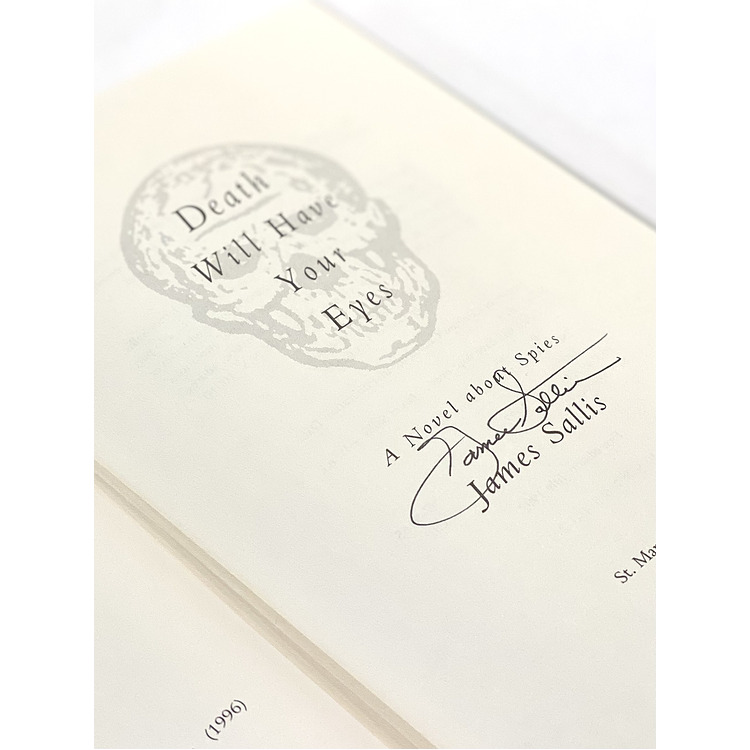 Death
Will Have
Your
Eyes
A Novel about Spies
James Sallis
James Sallis
St. Mar
(1996)